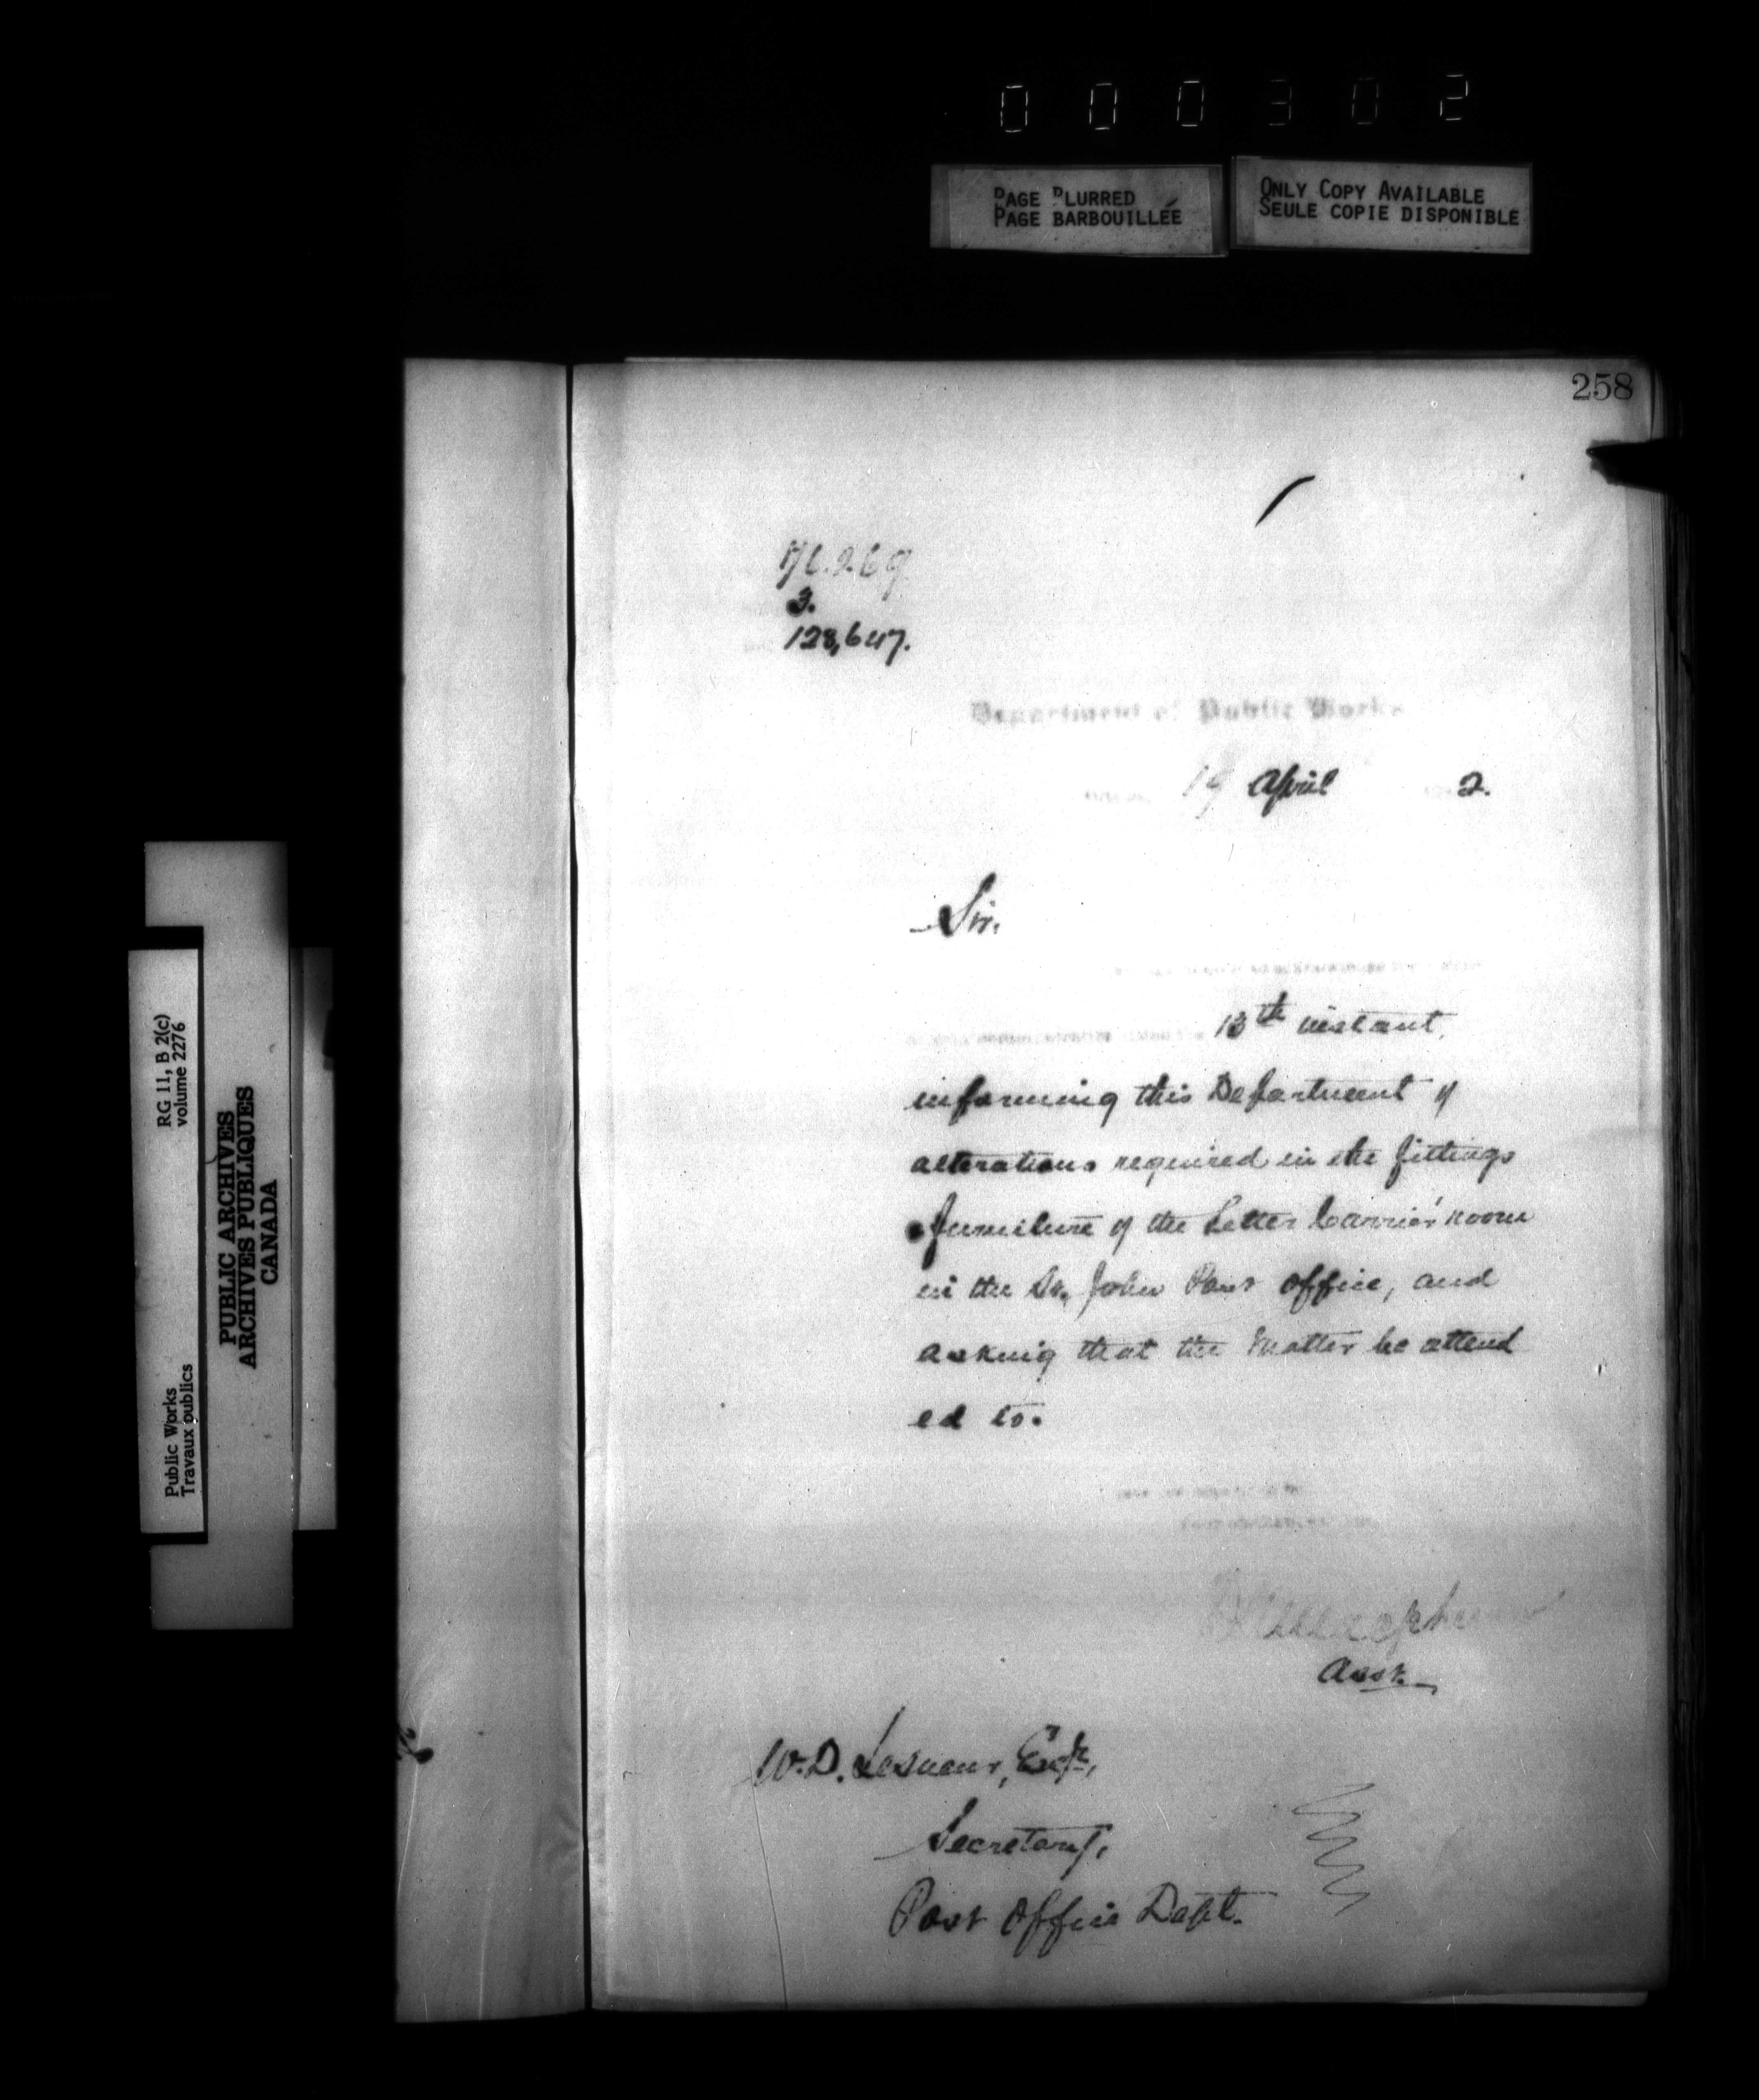 000302
PAGE BLURRED
PAGE BARBOUILLÉE
ONLY COPY AVAILABLE
SEULE COPIE DISPONIBLE
258
3.
128,647.
Department of Public Works
19 April 2.
Sir.
13th instant,
informing this Department of
alterations required in the fittings
furniture of the Letter Carrier' room
in the St. John Post Office, and
asking that the matter be attend
ed to.
Asst.
W. D. Lesueur, Esqr,
Secretary,
Post Office Dept.
RG 11, B 2(c)
volume 2276
Public Works
Travaux publics
PUBLIC ARCHIVES
ARCHIVES PUBLIQUES
CANADA